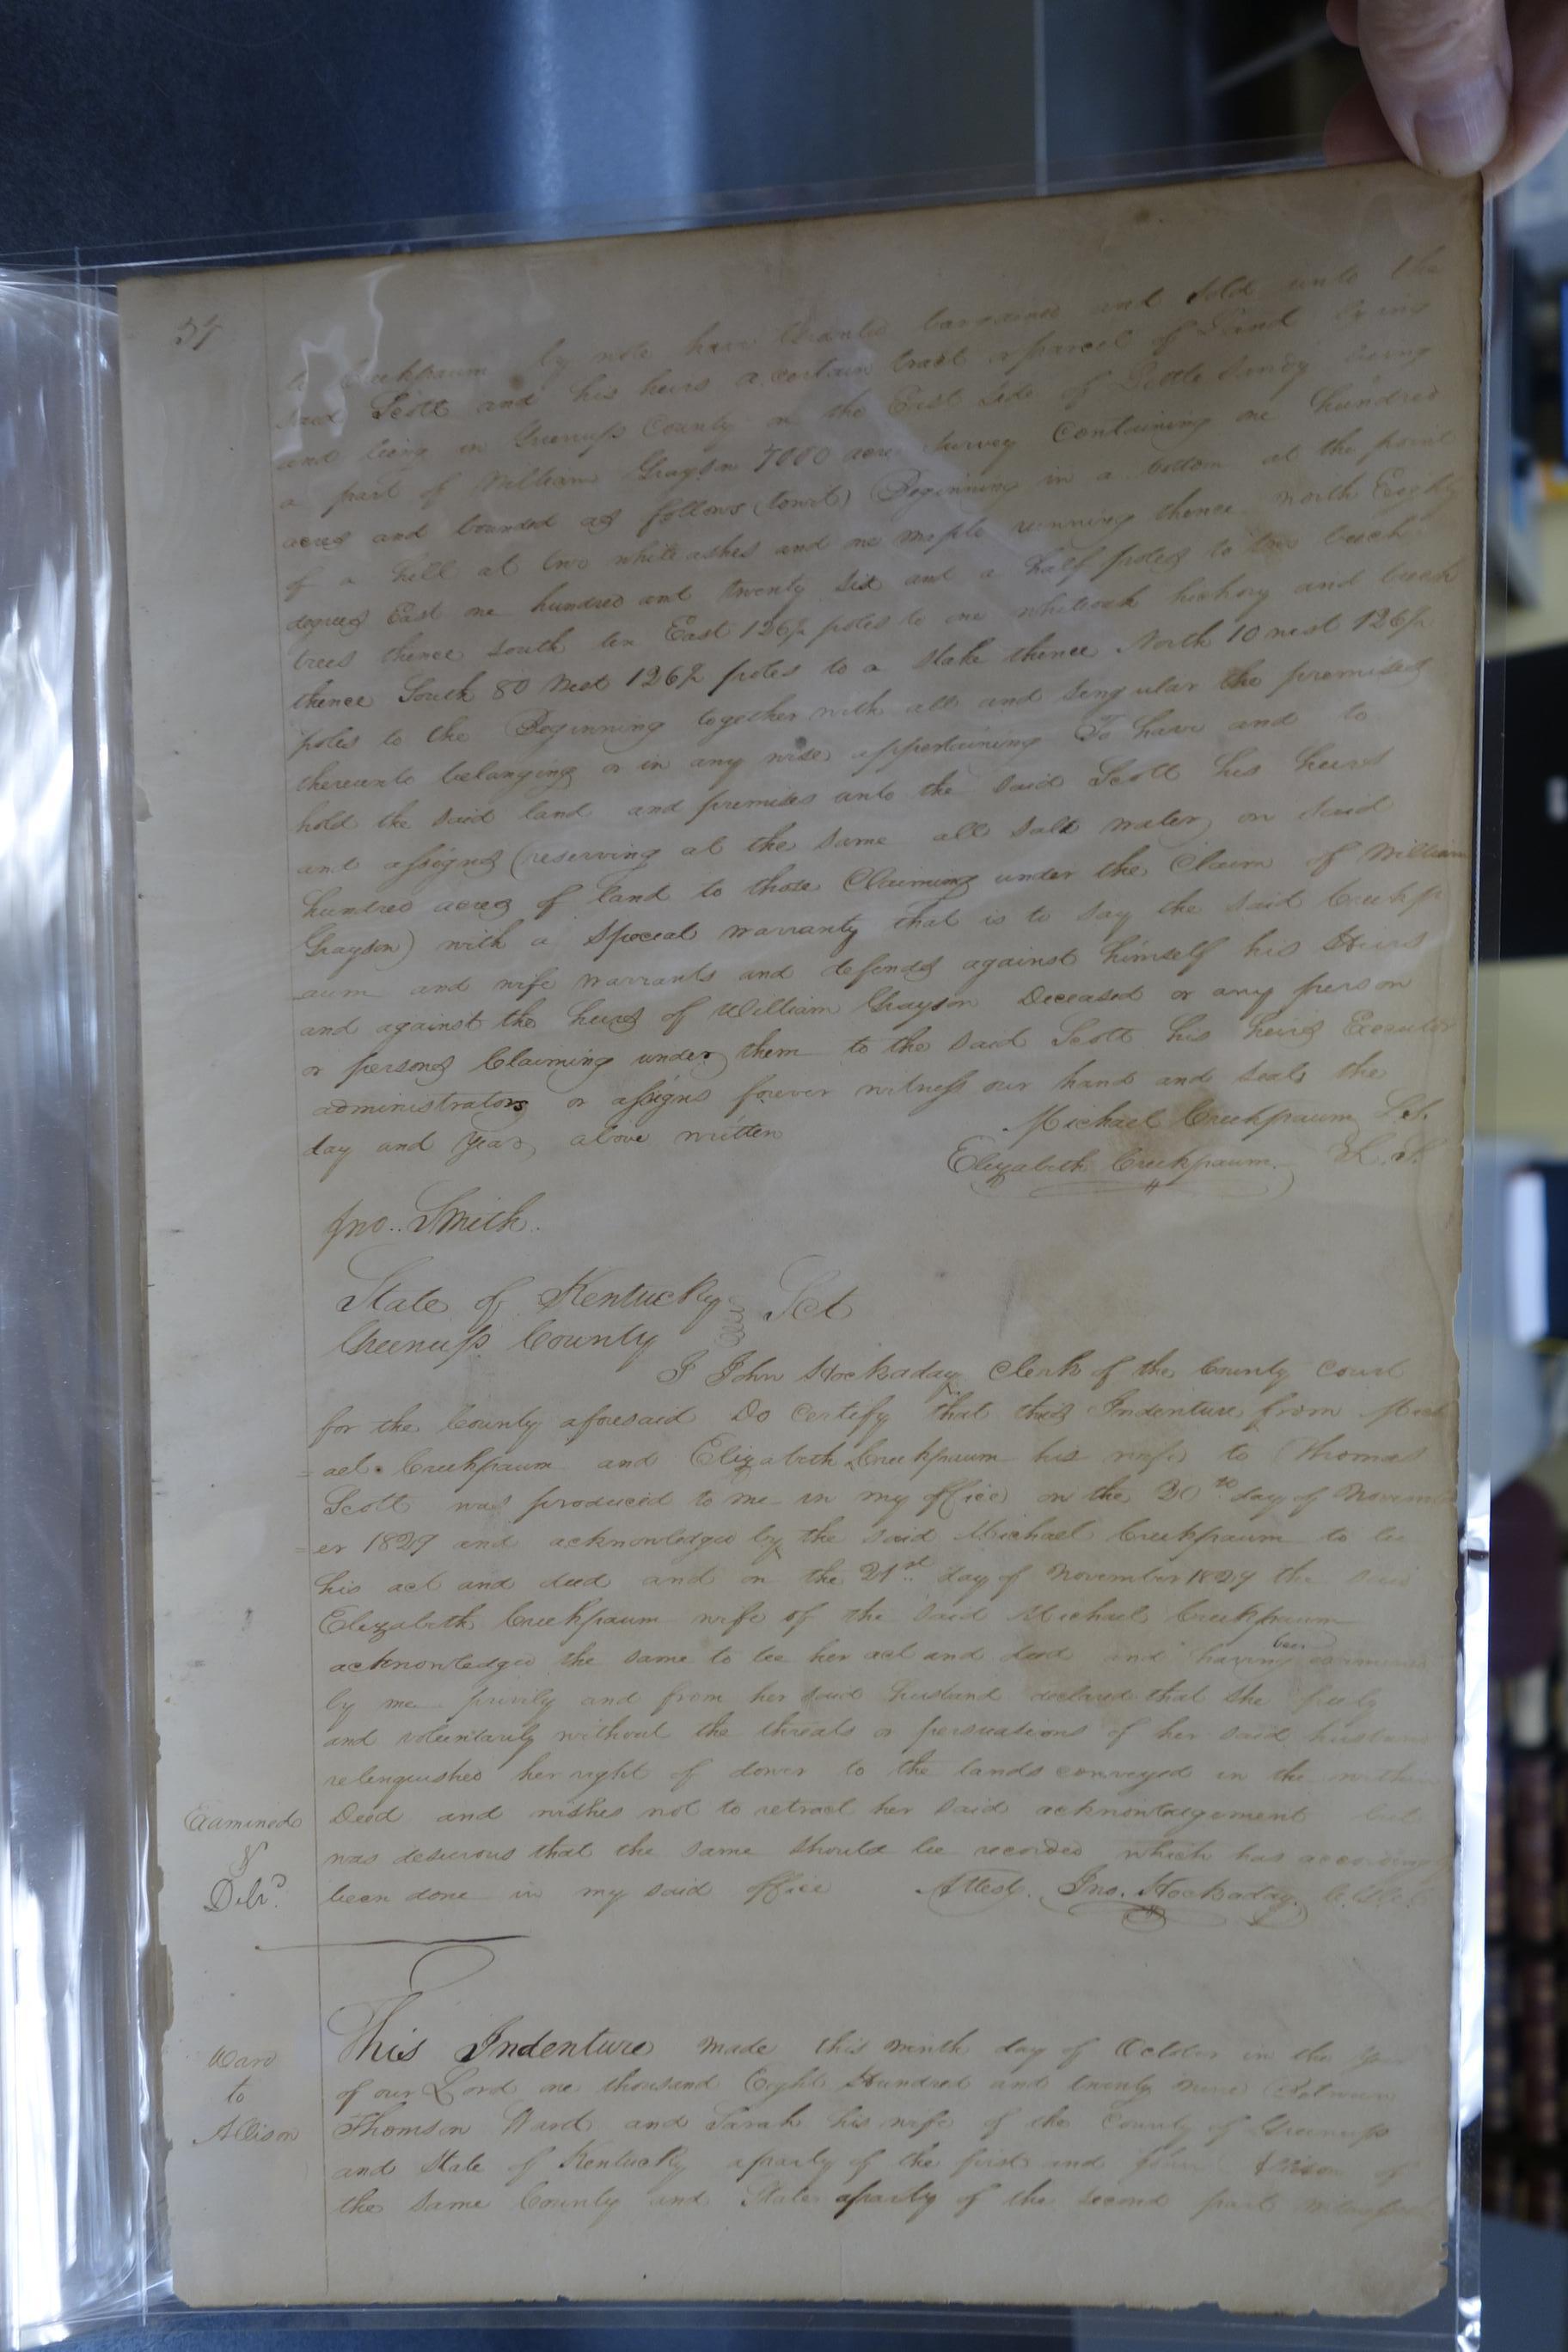 said Scott and his heirs a certain tract or parcel of Land Lying
and being in Greenup County on the East Side of Little Sandy being
a part of William Grayson 7000 acre Survey Containing one hundred
acres and bounded as follows (towit) Beginning in a bottom at the point
of a hill at two white ashes and one maple running thence north Eighty
degrees East one hundred and twenty six and a half poles to two beech
trees thence south ten East 126½ poles to one whiteoak hickory and beech
thence South 80 West 126½ poles to a stake thence North 10 west 126½
poles to the Beginning together with all and singular the premises
thereunto belonging or in any wise appertaining To have and to
hold the said land and premises unto the said Scott his heirs
and assigns (reserving at the same all salt water on said
hundred acres of land to those Claiming under the Claim of William
Grayson) with a special warranty that is to say the said Creekp
aum and wife warrants and defends against himself his Heirs
and against the heirs of William Grayson Deceased or any person
or persons Claiming under them to the said Scott his heirs Executor
administrators or assigns forever witness our hand and seals the
day and year above written
Michael Creekpaum L.S.
Elizabeth Creekpaum L.S.
Jno. Smith.
State of Kentucky Sct
Greenup County
I John Hockaday Clerk of the County court
for the County aforesaid Do Certify that this Indenture from Mich
=ael Creekpaum and Elizabeth Creekpaum his wife to Thomas
Scott was produced to me in my office on the 20th day of Novemb
=er 1829 and acknowledged by the said Michael Creekpaum to be
his act and deed and on the 21st day of November 1829 the said
Elizabeth Creekpaum wife of the said Michael Creekpaum
acknowledged the same to be her act and deed and having been examined
by me privily and from her said husband declared that she freely
and voluntarily without the threats or persuations of her said husband
relinquished her right of dower to the lands conveyed in the within
Deed and wishes not to retract her said acknowledgement but
was desirous that the same should be recorded which has accordingly
been done in my said office Attest. Jno. Hockaday. C.G.C.C.
Examined
&
Deld
Ward
to
Allison
This Indenture made this ninth day of October in the Year
of our Lord one thousand Eight Hundred and twenty nine Between
Thomson Ward and Sarah his wife of the County of Greenup
and State of Kentucky a party of the first and Allison of
the same County and State a party of the second part witnesseth